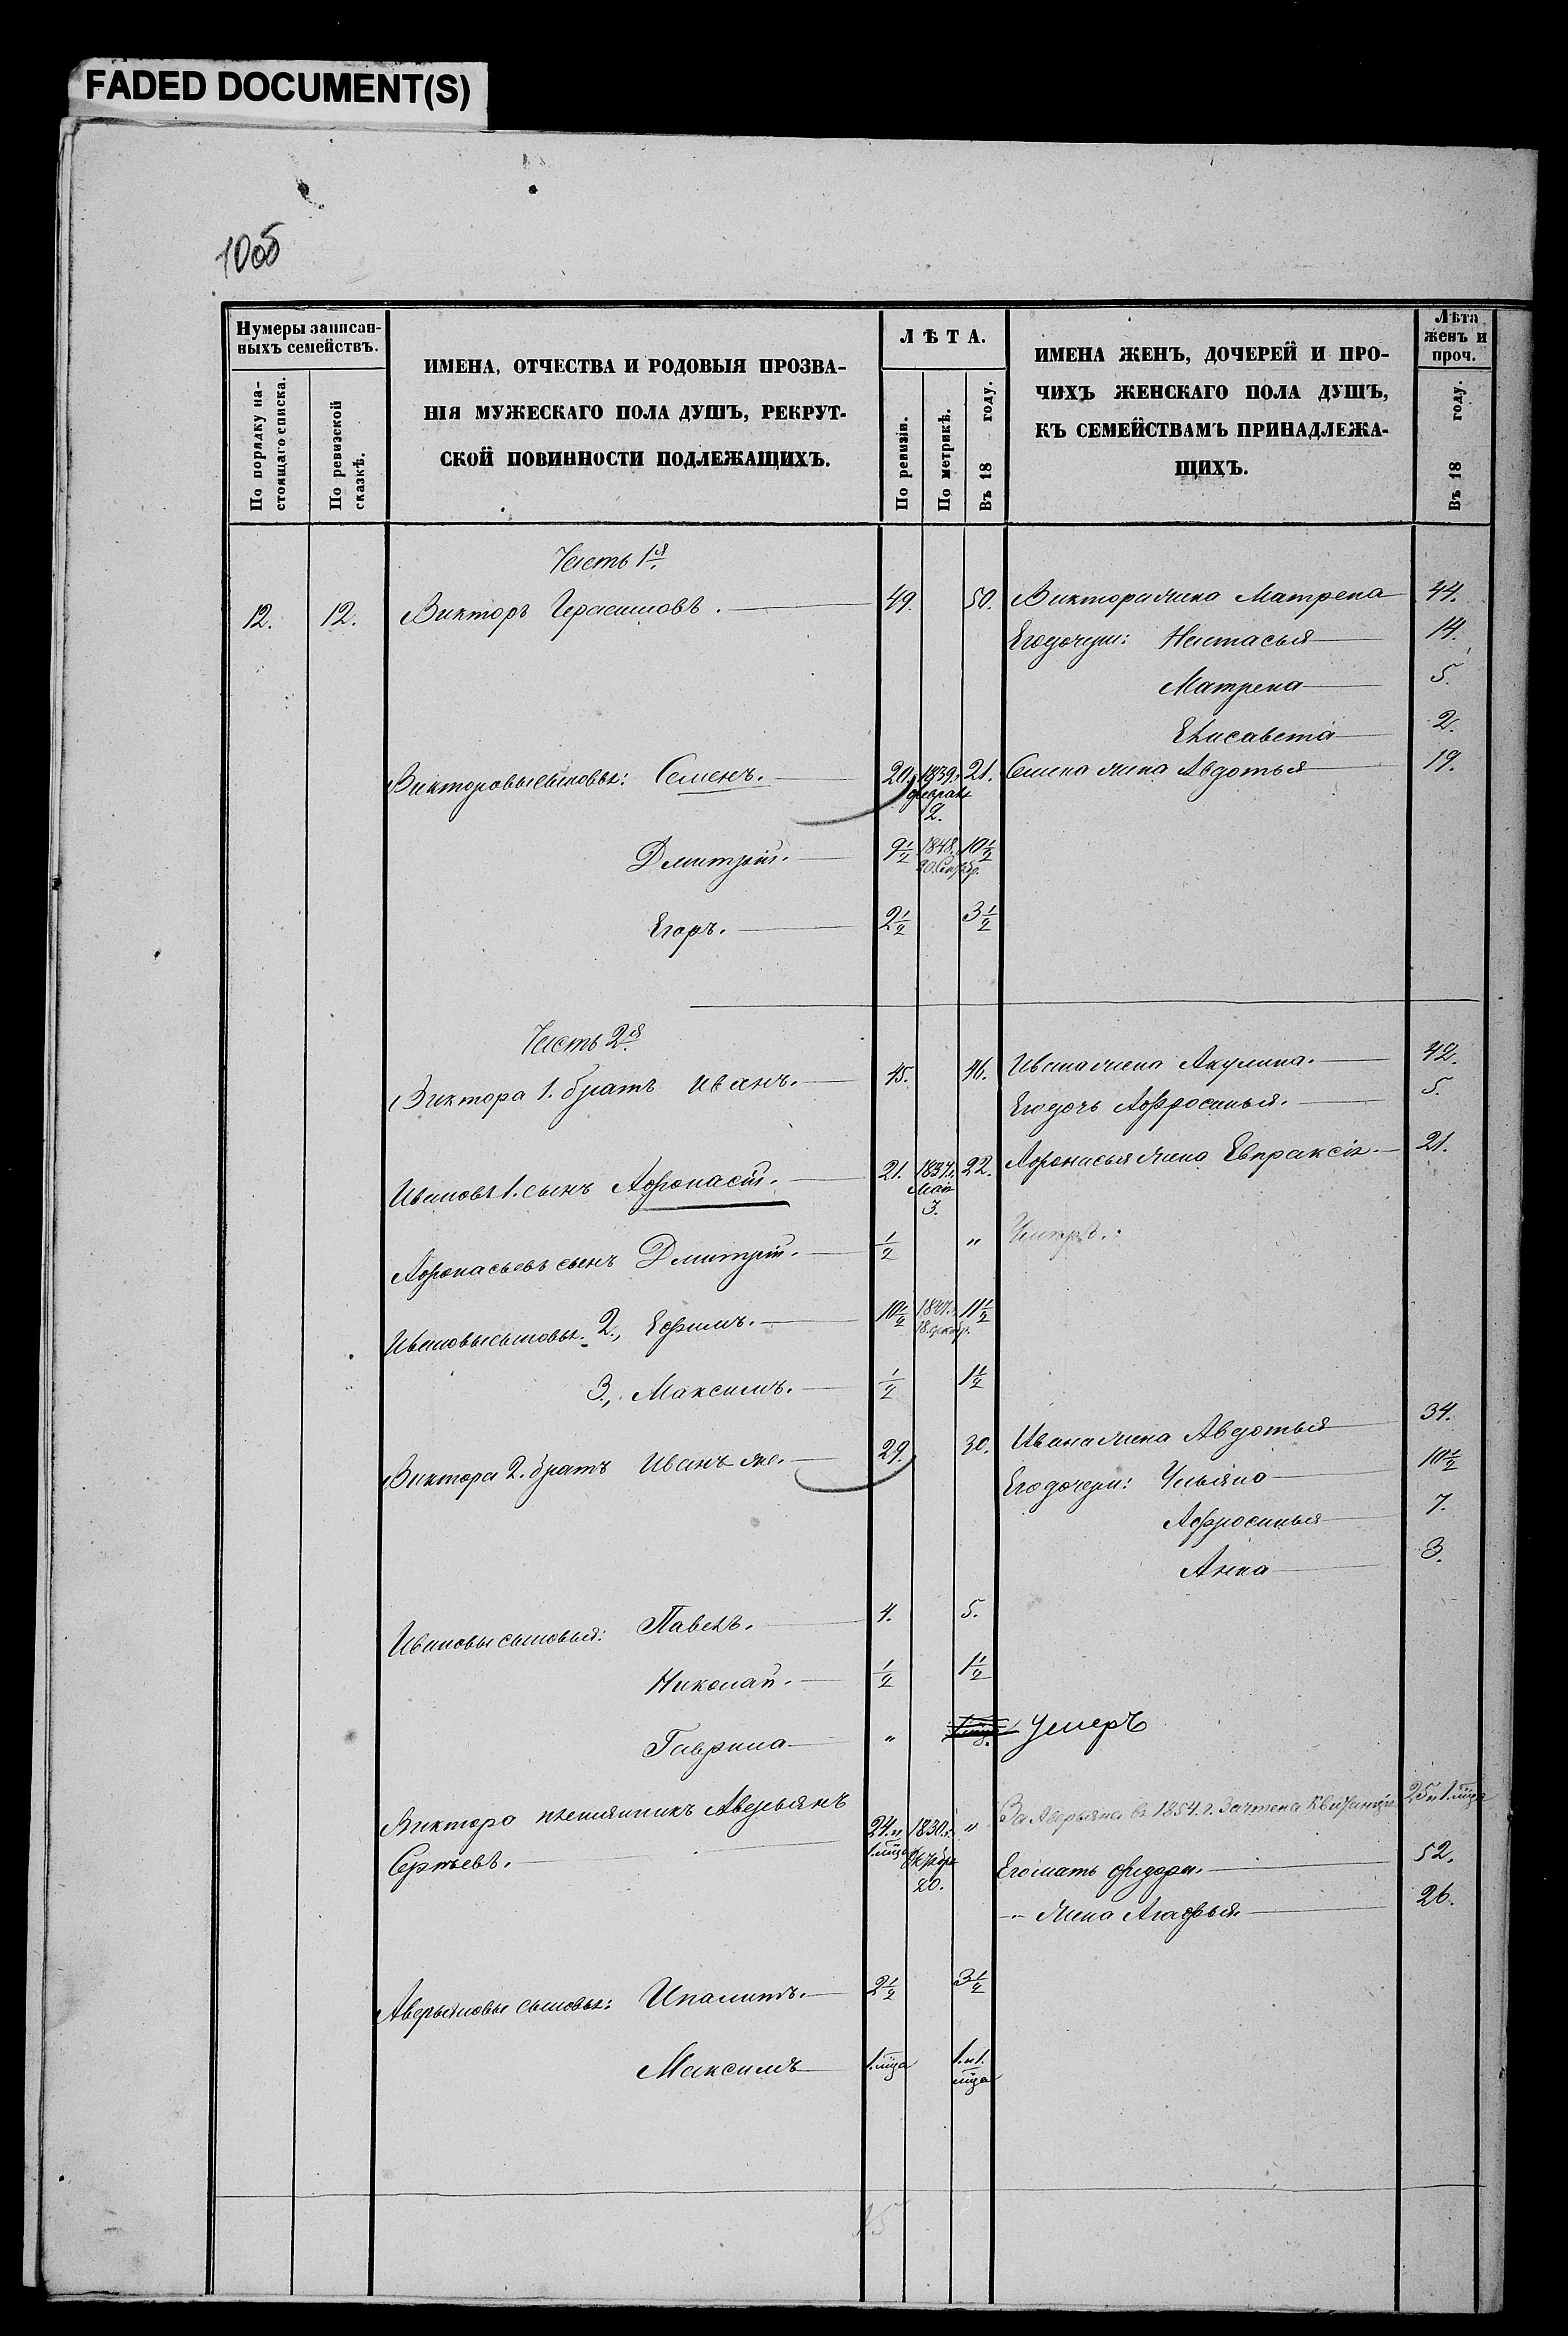 FADED DOCUMENT(S)
10об
Нумеры записан-
ныхъ семействъ.
По порядку на-
стоящаго списка.
По ревизской
сказкѣ.
ИМЕНА, ОТЧЕСТВА И РОДОВЫЯ ПРОЗВА-
НІЯ МУЖЕСКАГО ПОЛА ДУШЪ, РЕКРУТ-
СКОЙ ПОВИННОСТИ ПОДЛЕЖАЩИХЪ.
ЛѢТА.
По ревизіи.
По метрикѣ.
Въ 18 году.
ИМЕНА ЖЕНЪ, ДОЧЕРЕЙ И ПРО-
ЧИХЪ ЖЕНСКАГО ПОЛА ДУШЪ,
КЪ СЕМЕЙСТВАМЪ ПРИНАДЛЕЖА-
ЩИХЪ.
Лѣта
женъ и
проч.
Въ 18 году.
Часть 1я
12. 12. Викторъ Герасимовъ. 49. 50. Виктора жена Матрена 44.
Его дочери: Настасья 14.
Матрена 5.
Елисавета 2.
Викторовы сыновья: Семенъ. 20. 1839. 21. Семена жена Авдотья 19.
февраля
2.
Дмитрій. 9½ 1848. 10½
20. Сентбр.
Егоръ. 2½ 3½
Часть 2я
Виктора 1. братъ Иванъ. 45. 46. Ивана жена Акулина. 42.
Его дочь Афросинья. 5.
Ивановъ 1. сынъ Афонасій. 21. 1837. 22. Афонасья жена Евпраксія 21.
Мая
3.
Афонасьевъ сынъ Дмитрій. ½ " Умеръ.
Ивановы сыновья. 2., Ефимъ. 10½ 1847. 11½
18. декабр.
3., Максимъ. ½ 1½
Виктора 2. братъ Иванъ же. 29. 30. Ивана жена Авдотья 34.
Его дочери: Ульяна 10½
Афросинья 7.
Анна 3.
Ивановы сыновья: Павелъ. 4. 5.
Николай. ½ 1½
Гаврила " Умеръ
Виктора племянникъ Аверьянъ 24. и 1830. " За Аверьяна въ 1854. г. зачтена квитанція 25 и 1. мца
Сергѣевъ. 1. мца Октября Его мать Федора. 52.
20.
" Жена Агафья. 26.
Аверьяновы сыновья: Иполитъ. 2½ 3½
Максимъ 1. мца 1. и 1.
мца